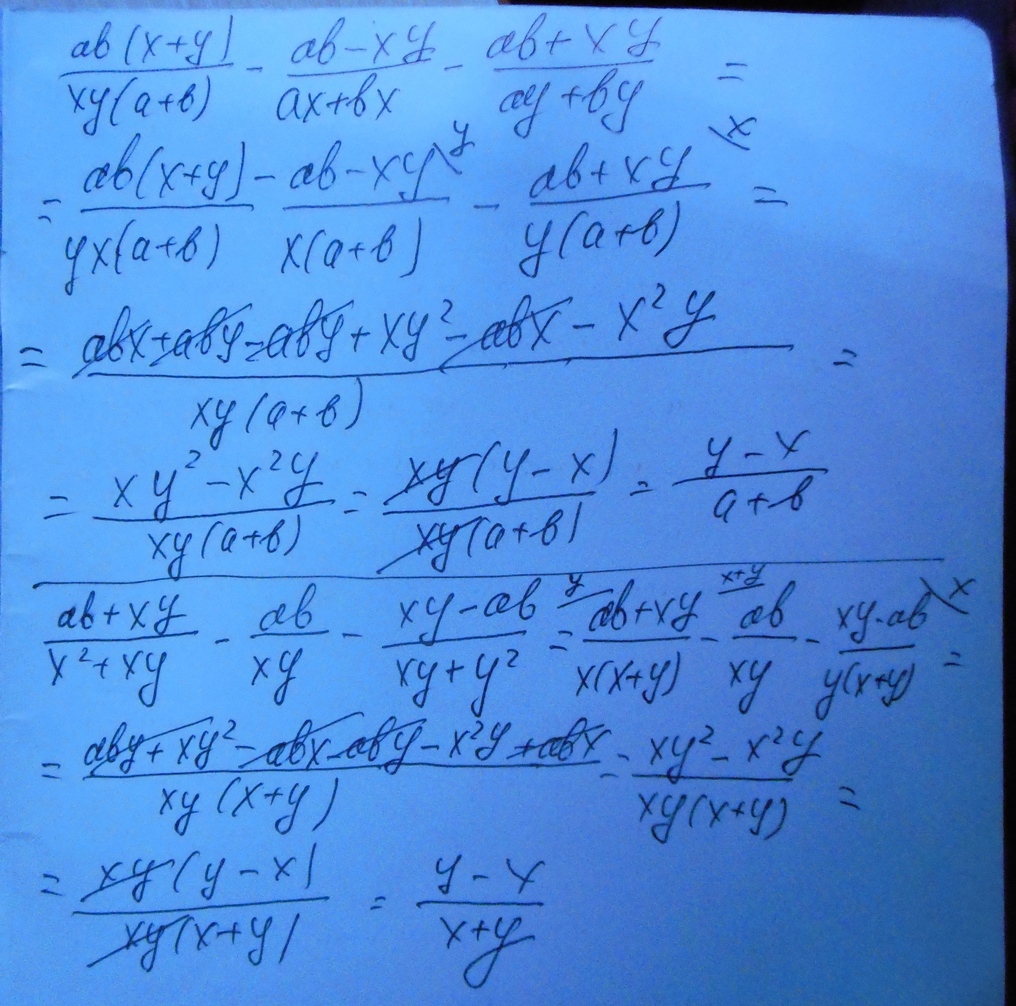 ab(x+y)/xy(a+b) - ab-xy/ax+bx - ab+xy/ay+by =
= ab(x+y)/yx(a+b) - ab-xy\y/x(a+b) - ab+xy\x/y(a+b) =
= abx+aby-aby+xy²-abx-x²y/xy(a+b) =
= xy²-x²y/xy(a+b) = xy(y-x)/xy(a+b) = y-x/a+b
ab+xy/x²+xy - ab/xy - xy-ab/xy+y² = y/ab+xy/x(x+y) - x+y/ab/xy - xy-ab\x/y(x+y) =
= aby+xy²-abx-aby-x²y+abx/xy(x+y) = xy²-x²y/xy(x+y) =
= xy(y-x)/xy(x+y) = y-x/x+y